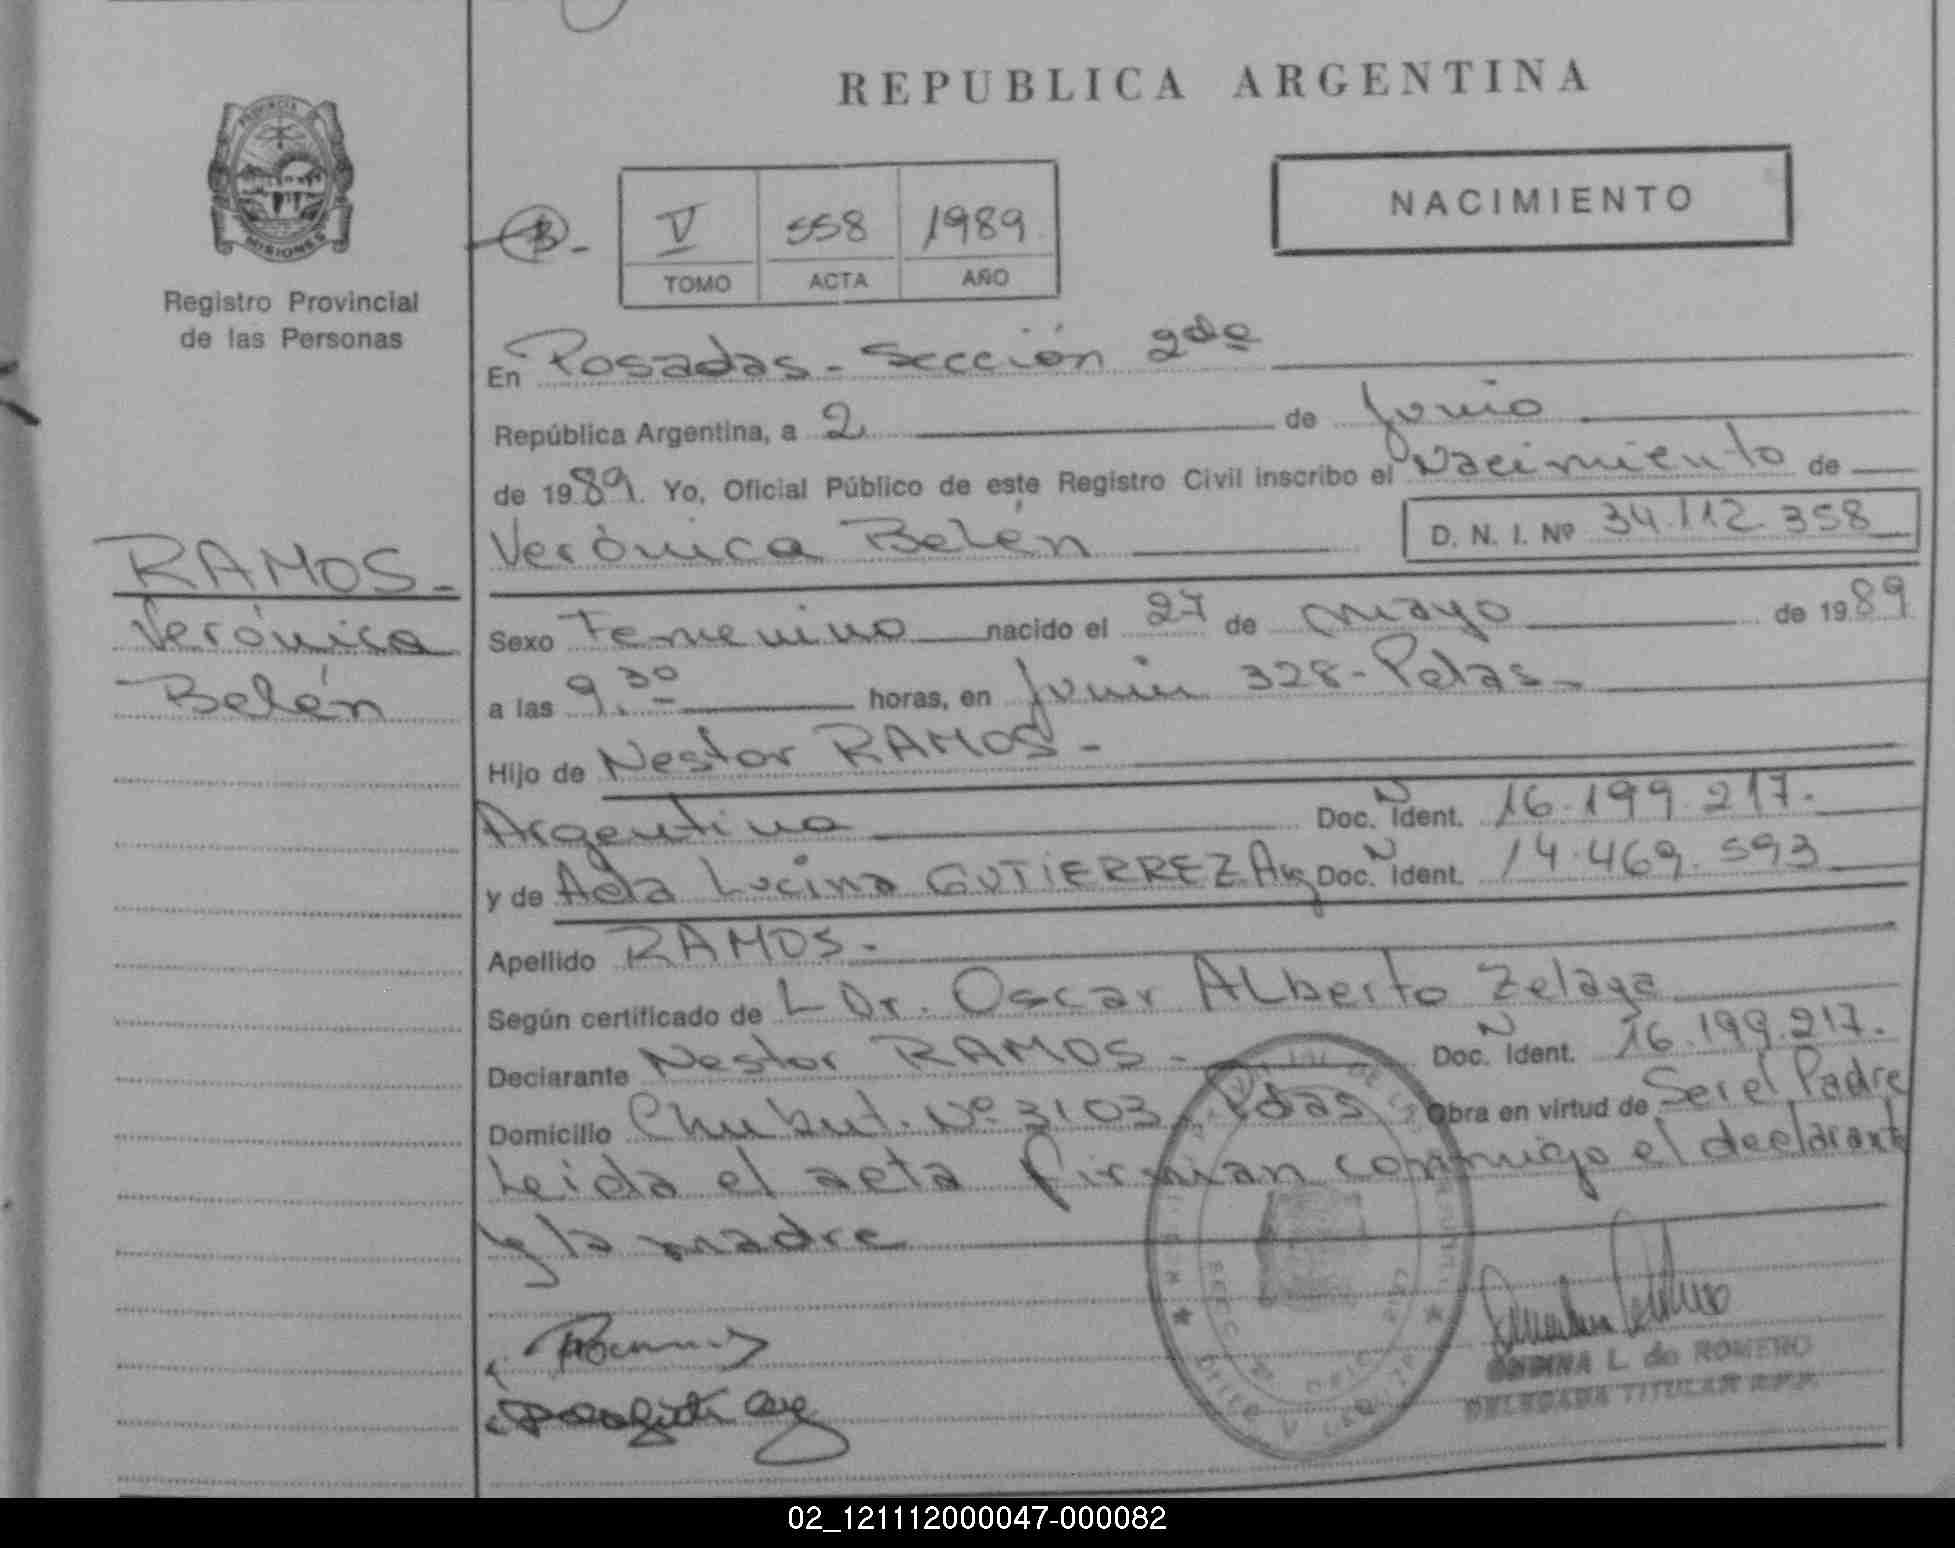 REPUBLICA ARGENTINA
PROVINCIA
MISIONES
Registro Provincial
de las Personas
NACIMIENTO
B-
V 558 1989
TOMO ACTA AÑO
En Posadas - Sección 2da
República Argentina, a 2 de Junio
de 1989. Yo, Oficial Público de este Registro Civil inscribo el Nacimiento de
Verónica Belén
D. N. I. Nº 34.112.358
RAMOS-
Verónica
Belén
Sexo Femenino nacido el 27 de mayo de 1989
a las 9.30 horas, en Junín 328 - Pdas -
Hijo de Nestor RAMOS -
Argentino Doc. N Ident. 16.199.217.
y de Ada Lucina GUTIERREZ Arg Doc. N Ident. 14.469.593
Apellido RAMOS -
Según certificado de L Dr. Oscar ALberto Zelaya
Declarante Nestor RAMOS - Doc. N Ident. 16.199.217.
Domicilio Chubut. Nº 3103, Pdas Obra en virtud de Ser el Padre
Leida el acta firman conmigo el declarante
y la madre
ONDINA L de ROMERO
DELEGADA TITULAR R.P.P.
02_121112000047-000082